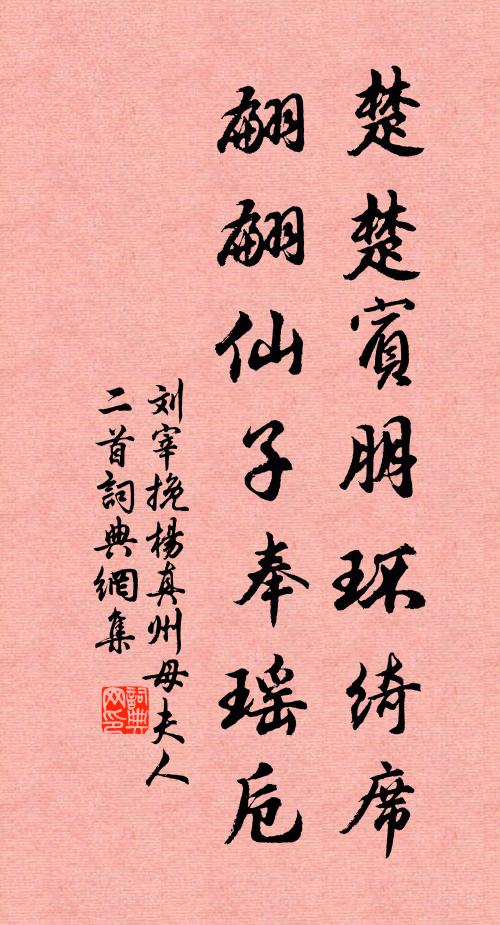 楚楚賓朋环绮席
翩翩仙子奉瑶卮
刘宰挽楊真州母夫人
二首詞典網集
詞典网印